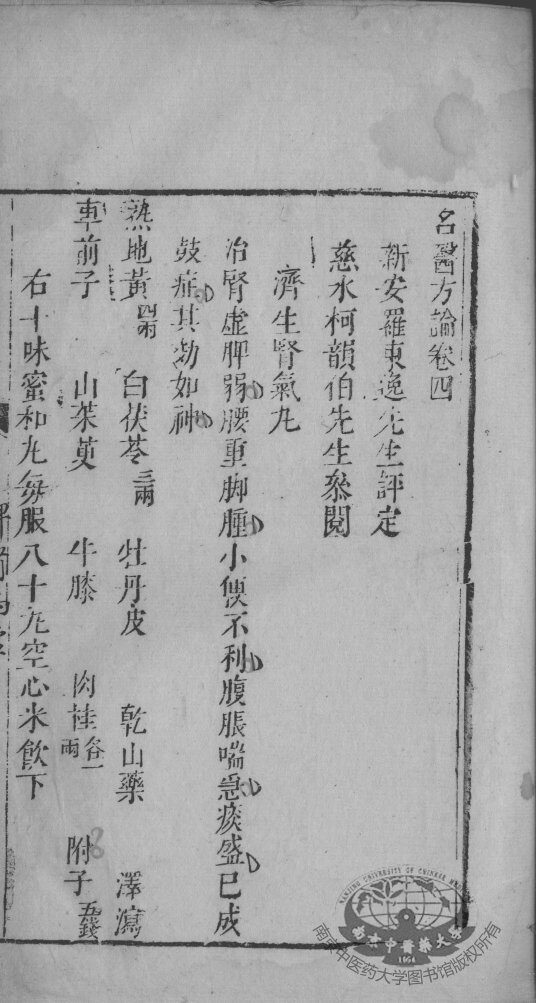 名醫方論卷四
新安羅東逸先生評定
慈水柯韻伯先生叅閱
濟生腎氣丸
治腎虛脾弱腰重脚腫小便不利腹脹喘急痰盛已成
鼓症其効如神
熟地黃四兩 白茯苓三兩 牡丹皮 乾山藥 澤瀉
車前子 山茱萸 牛膝 肉桂各一兩 附子五錢
右十味蜜和丸每服八十丸空心米飲下
NANJING UNIVERSITY OF CHINESE MEDICINE
南京中醫藥大學
1954
南京中医药大学图书馆版权所有